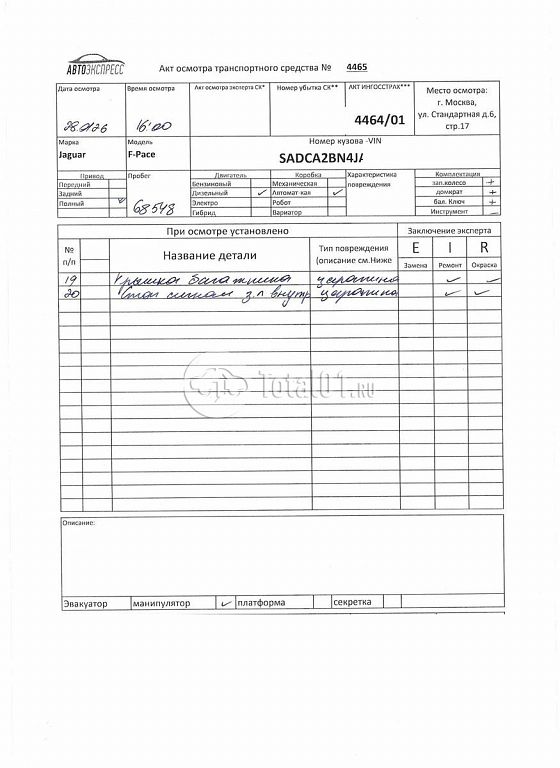 АВТОЭКСПРЕСС
Акт осмотра транспортного средства № 4465
Дата осмотра Время осмотра Акт осмотра эксперта СК* Номер убытка СК** АКТ ИНГОССТРАХ*** Место осмотра:
г. Москва,
ул. Стандартная д.6,
стр.17
16:00 4464/01
Марка Модель Номер кузова -VIN
Jaguar F-Pace SADCA2BN4J
Привод Пробег Двигатель Коробка Характеристика повреждения Комплектация
Передний Бензиновый Механическая зап.колесо +
Задний Дизельный ✓ Автомат-кая ✓ домкрат +
Полный ✓ 68548 Электро Робот бал. Ключ +
Гибрид Вариатор Инструмент -
При осмотре установлено Заключение эксперта
№ п/п Название детали Тип повреждения (описание см.Ниже E I R
Замена Ремонт Окраска
19 Крышка багажника царапина ✓ ✓
20 Стоп сигнал з.л внутр царапина ✓ ✓
Total01.RU
Описание:
Эвакуатор манипулятор ✓ платформа секретка